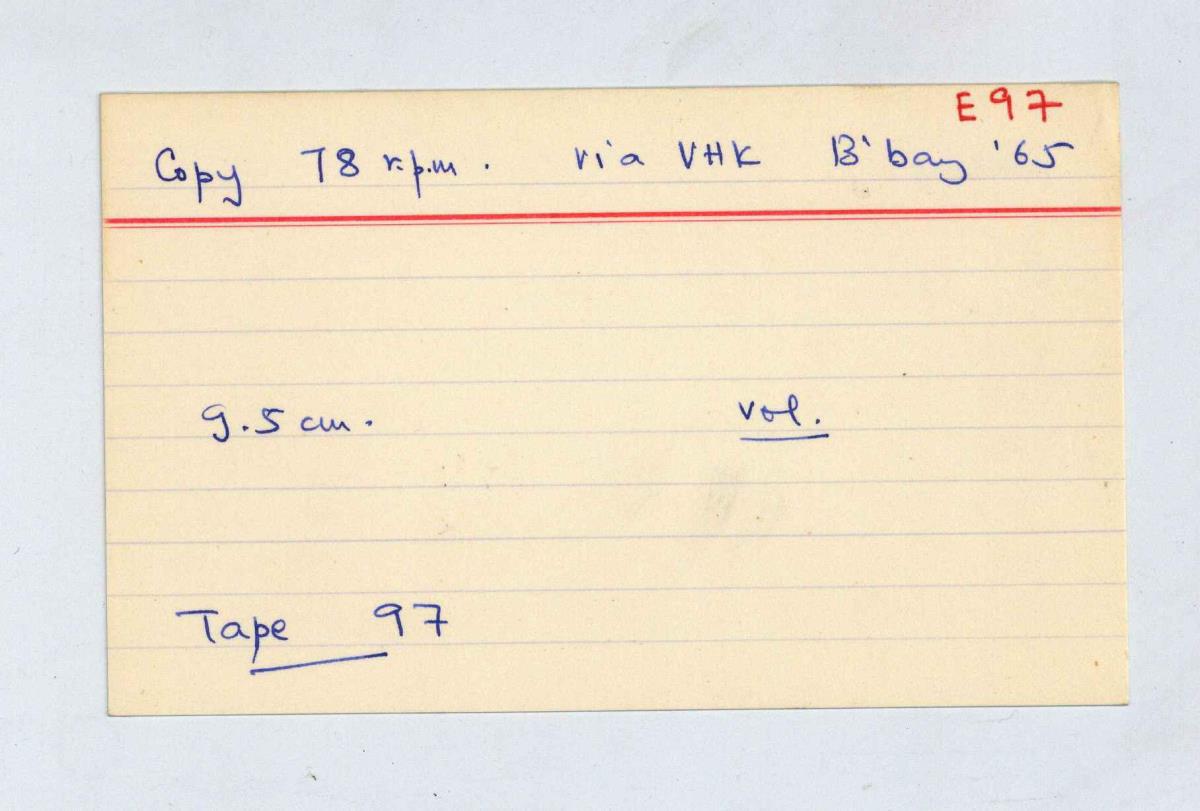 E97
Copy 78 r.p.m. via VHK B'bay '65
9.5 cm. vol.
Tape 97